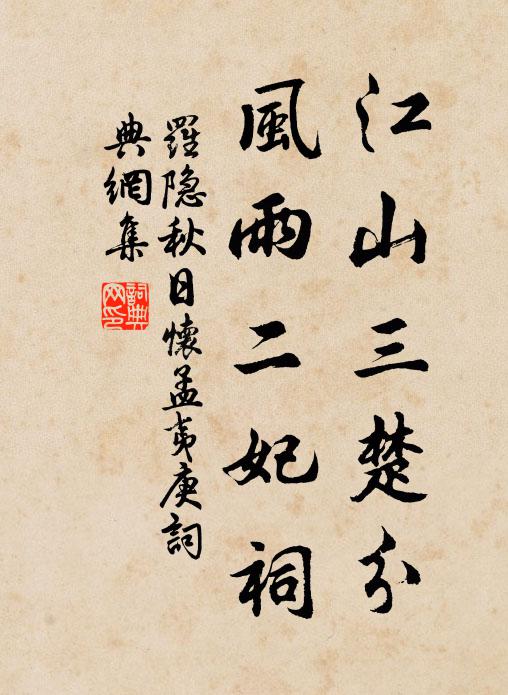 江山三楚分
風雨二妃祠
羅隐秋日懷孟夷庚詞
典網集
詞典網印